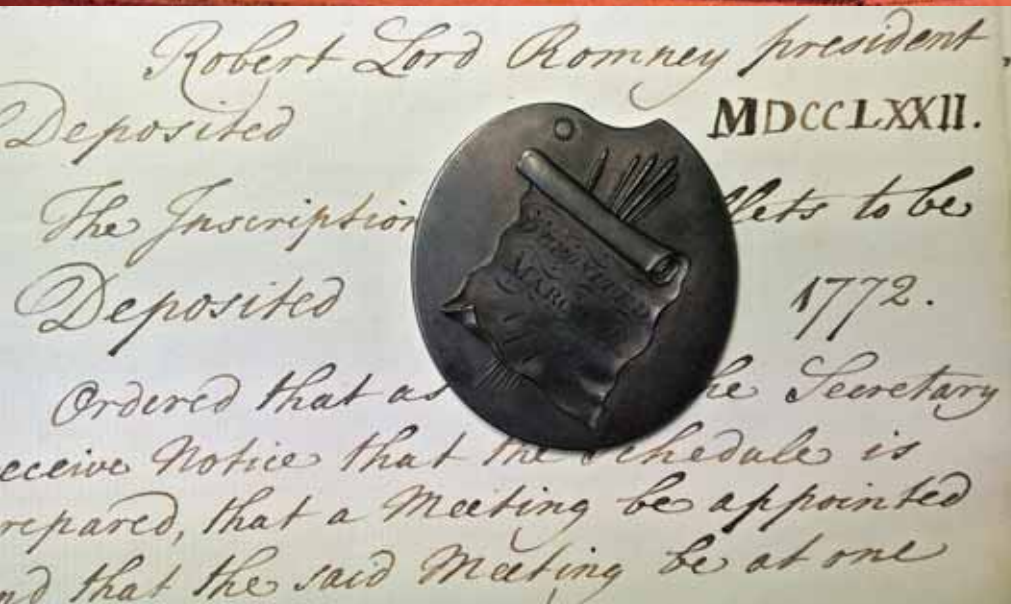 Robert Lord Romney president,
Deposited MDCCLXXII.
The Inscription llets to be
Deposited 1772.
Ordered that as he Secretary
eceive Notice that the Schedule is
repared, that a Meeting be appointed
nd that the said Meeting be at one